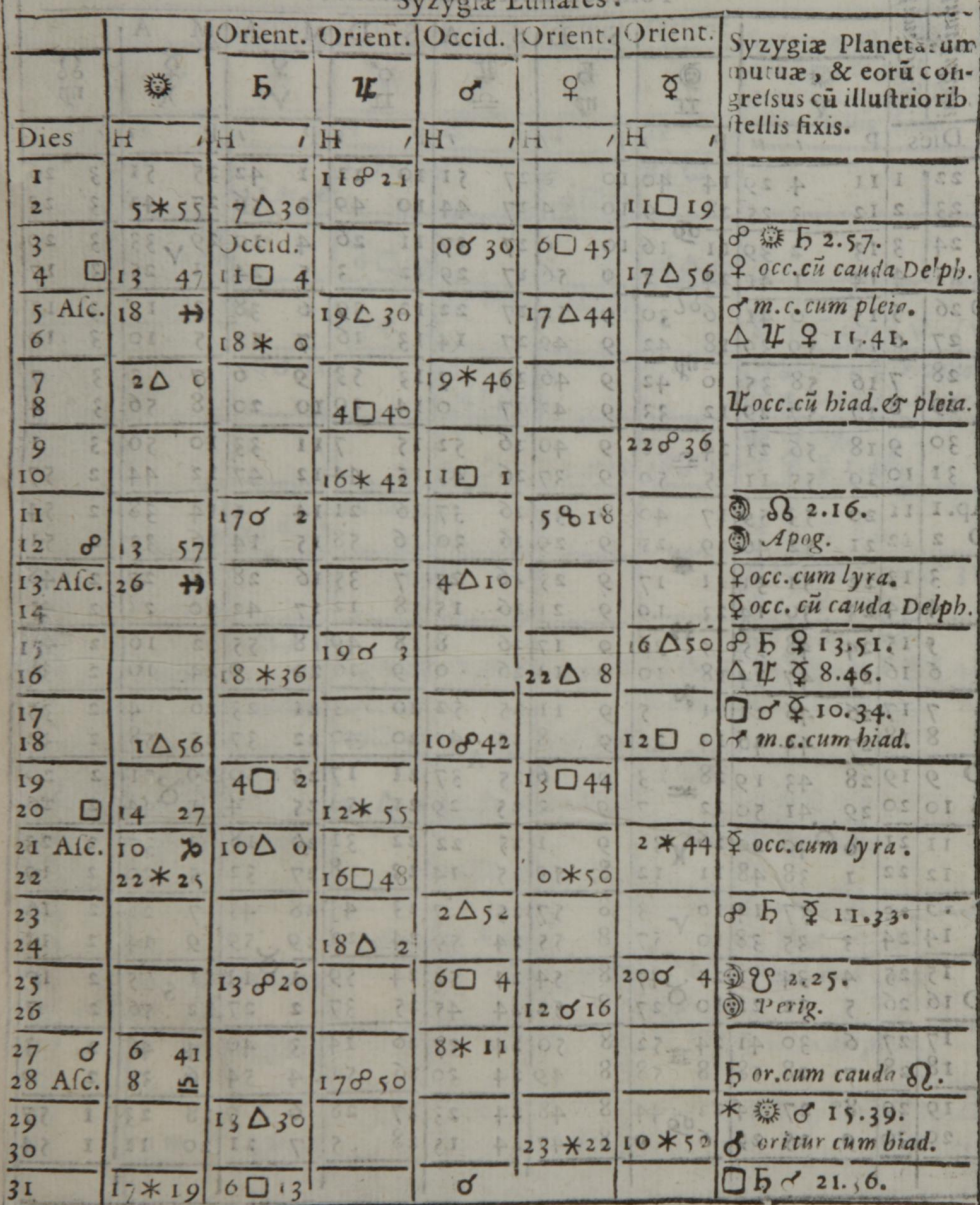 Syzygiæ Lunares.
Orient. Orient. Occid. Orient. Orient. Syzygiæ Planetarum
mutuæ, & eorū con-
☉ ♄ ♃ ♂ ♀ ☿ gressus cū illustriorib.
stellis fixis.
Dies H ′ H ′ H ′ H ′ H ′ H ′
1 11☍21
2 5✶55 7△30 11□19
3 Occid. 0☌30 6□45 ☍ ☉ ♄ 2.57.
4 □ 13 47 11□ 4 17△56 ♀ occ.cū cauda Delph.
5 Asc. 18 ♓ 19△30 17△44 ♂ m.c.cum pleia.
6 18✶ 0 △ ♃ ♀ 11.41.
7 2△ 0 19✶46
8 4□40 ♃occ.cū hiad.& pleia.
9 22☍36
10 16✶42 11□ 1
11 17☌ 2 5☍18 ☽ ☊ 2.16.
12 ☍ 13 57 ☽ Apog.
13 Asc. 26 ♓ 4△10 ♀occ.cum lyra.
14 ☿occ. cū cauda Delph.
15 19☌ 3 16△50 ☍ ♄ ♀ 13.51.
16 18✶36 22△ 8 △ ♃ ☿ 8.46.
17 □ ♂ ♀ 10.34.
18 1△56 10☍42 12□ 0 ♂ m.c.cum hiad.
19 4□ 2 13□44
20 □ 14 27 12✶55
21 Asc. 10 ♑ 10△ 0 2✶44 ☿ occ.cum lyra.
22 22✶25 16□48 0✶50
23 2△52 ☍ ♄ ☿ 11.33.
24 18△ 2
25 13☍20 6□ 4 20☌ 4 ☽ ☋ 2.25.
26 12☌16 ☽ Perig.
27 ☌ 6 41 8✶11
28 Asc. 8 ♎ 17☍50 ♄ or.cum cauda ♌.
29 13△30 ✶ ☉ ♂ 15.39.
30 23✶22 10✶52 ♂ oritur cum hiad.
31 17✶19 6□13 ☌ □ ♄ ♂